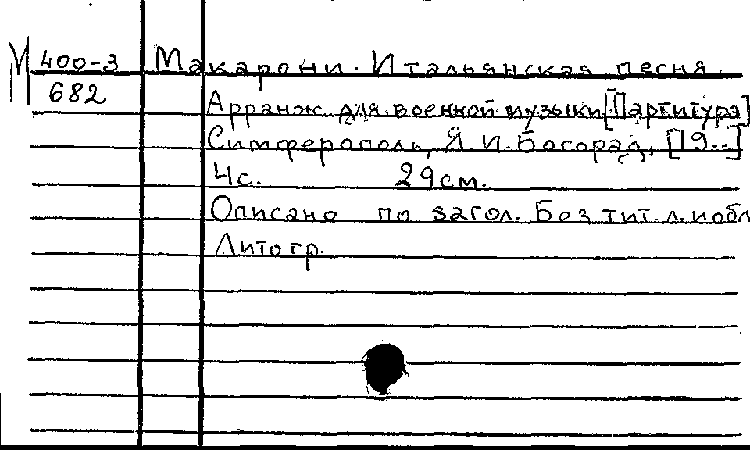 М 400-3 Макарони. Итальянская песня.
682
Арранж. для военной музыки [Партитура]
Симферополь, Я. И. Богорад, [19..]
4с. 29см.
Описано по загол. Без тит. л. и обл
Литогр.